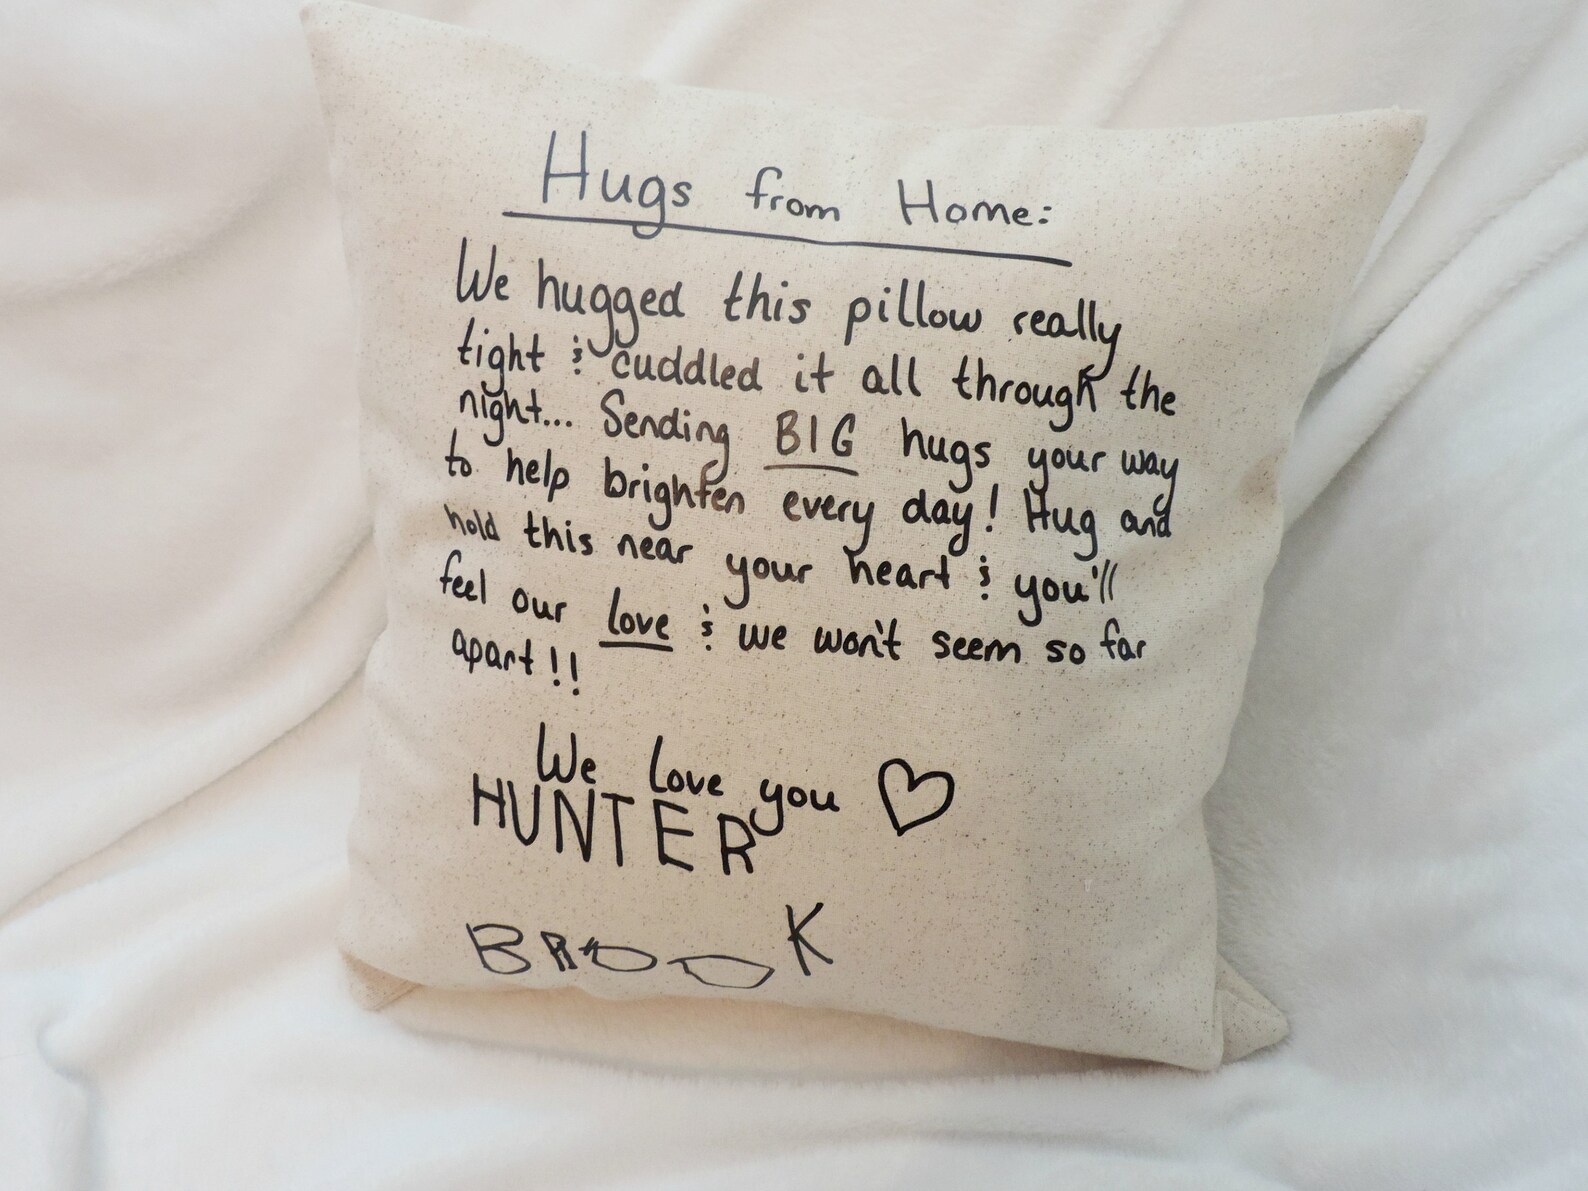 Hugs from Home:
We hugged this pillow really
tight & cuddled it all through the
night... Sending BIG hugs your way
to help brighten every day! Hug and
hold this near your heart & you'll
feel our love & we won't seem so far
apart!!
We love you ♡
HUNTER
BROOK